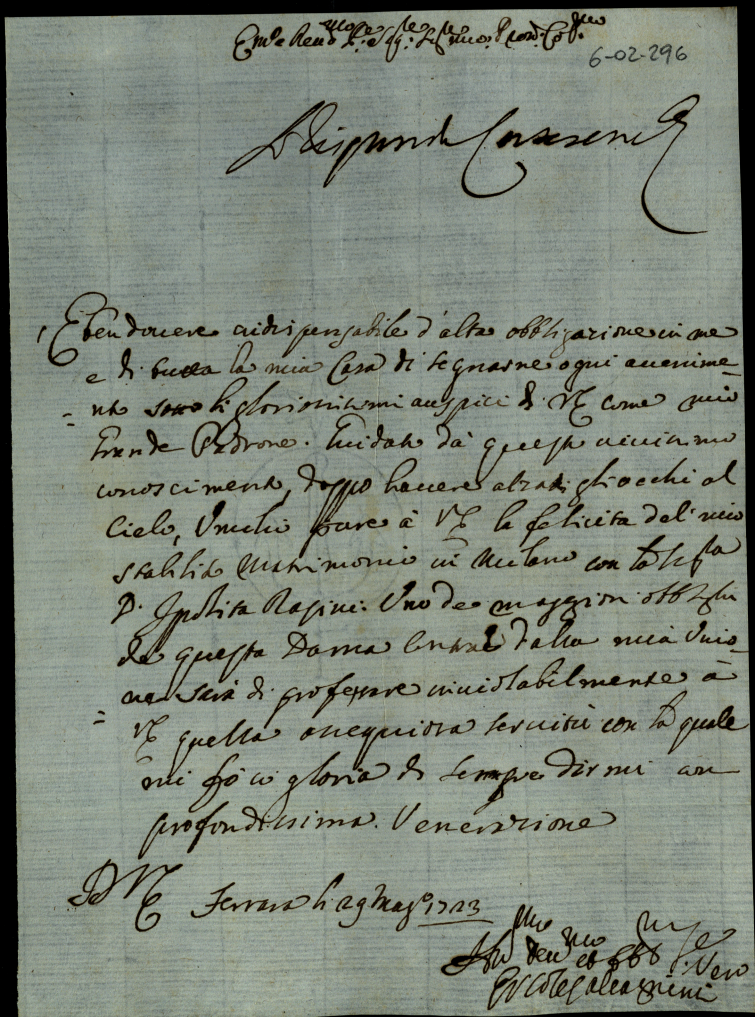 Em.º e Reud.mo Sig.re Sig.re P.ron Col.mo
6-02-296
È ben douere indispensabile d'alta obbligazione in me
e di tutta la mia Casa di segnarne ogni auuenime=
=nto sotto li gloriosissimi auspici di VE come mio
Grande Padrone. Guidato da questo uiuissimo
conoscimento, doppo hauere alzati gli occhi al
Cielo, Umilio pure à VE la felicità del mio
stabilito Matrimonio in Milano con la Sig.ra
D. Ipolita Rasini. Uno de maggiori obblighi
di questa Dama entrata dalla mia Unio=
=ne sarà di professare inuiolabilmente à
VE quella ossequiosa seruitù con la quale
mi fò di gloria di sempre dirmi con
profondissima Venerazione
D VE Ferrara li 29 Mag.º 1723
Vm.mo Deu.mo et Obb.mo Ser.e Vero
Ercole